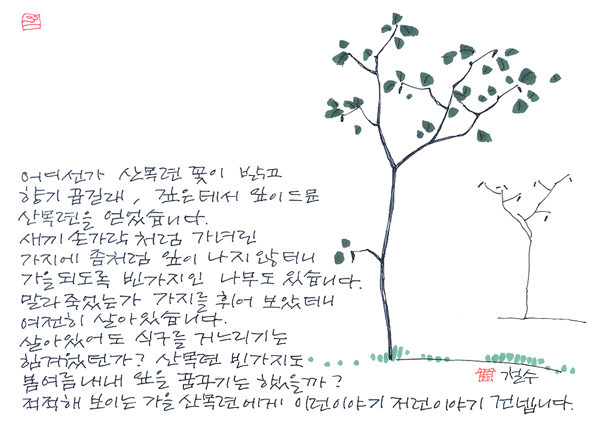 어여선가 산목련 꽃이 밝고
향기 곱길래, 깊은데서 잎이 드문
산목련을 얻었습니다.
새끼손가락처럼 가녀린
가지에 좀처럼 잎이 나지 않터니
가을되도록 빈가지인 나무도 있습니다.
말라죽었는가 가지를 휘어 보았터니
여전히 살아있습니다.
살아있어도 식구를 거느리기는
힘겨웠던가? 산목련 빈가지도
봄여름내내 잎을 꿈꾸기는 했을까?
적적해 보이는 가을 산목련에게 이런이야기 저런이야기 건넵니다.
철수